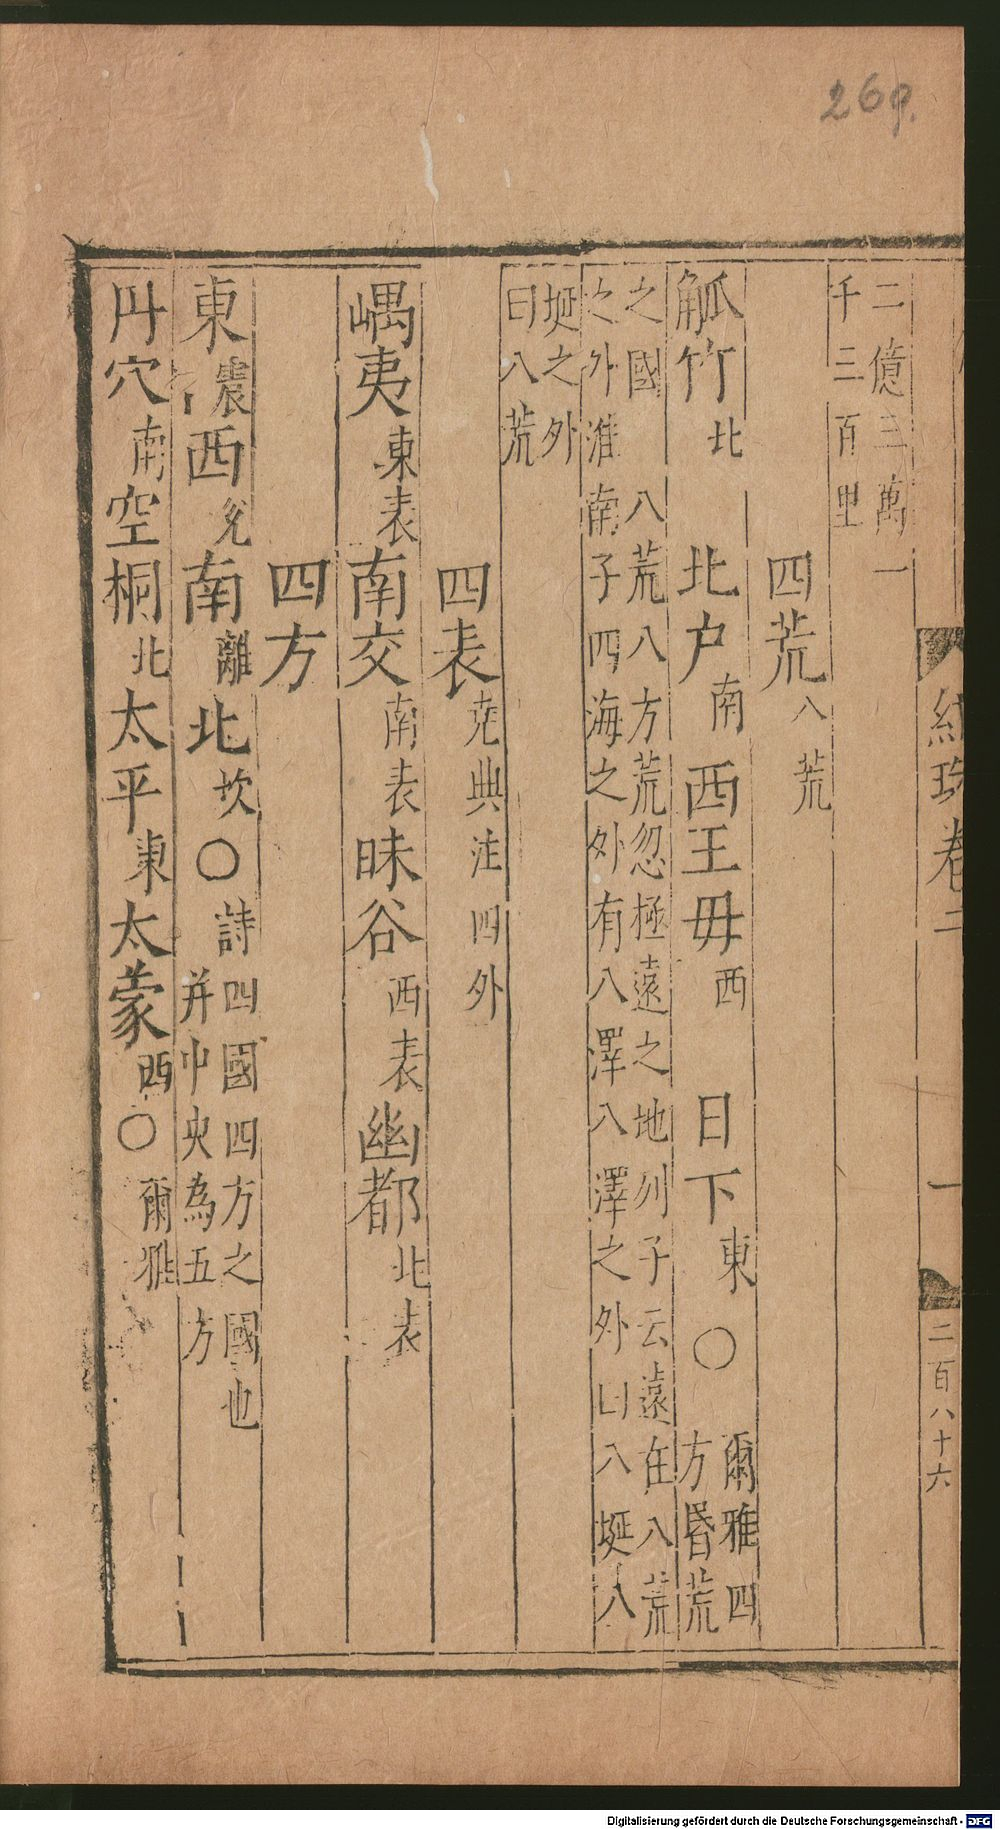 269.
紺珠卷二
一
二百八十六
二億三萬一
千三百里
四荒八荒
觚竹北 北户南 西王毋西 日下東 ○ 爾雅四
方昬荒
之國 八荒八方荒忽極遠之地列子云遠在八荒
之外淮南子四海之外有八澤八澤之外曰八埏八
埏之外
曰八荒
四表尭典注四外
嵎夷東表南交南表昧谷西表幽都北表
四方
東震西兌南離北坎○詩四國四方之國也
并中央為五方
丹穴南空桐北太平東太蒙西○爾雅
Digitalisierung gefördert durch die Deutsche Forschungsgemeinschaft - DFG